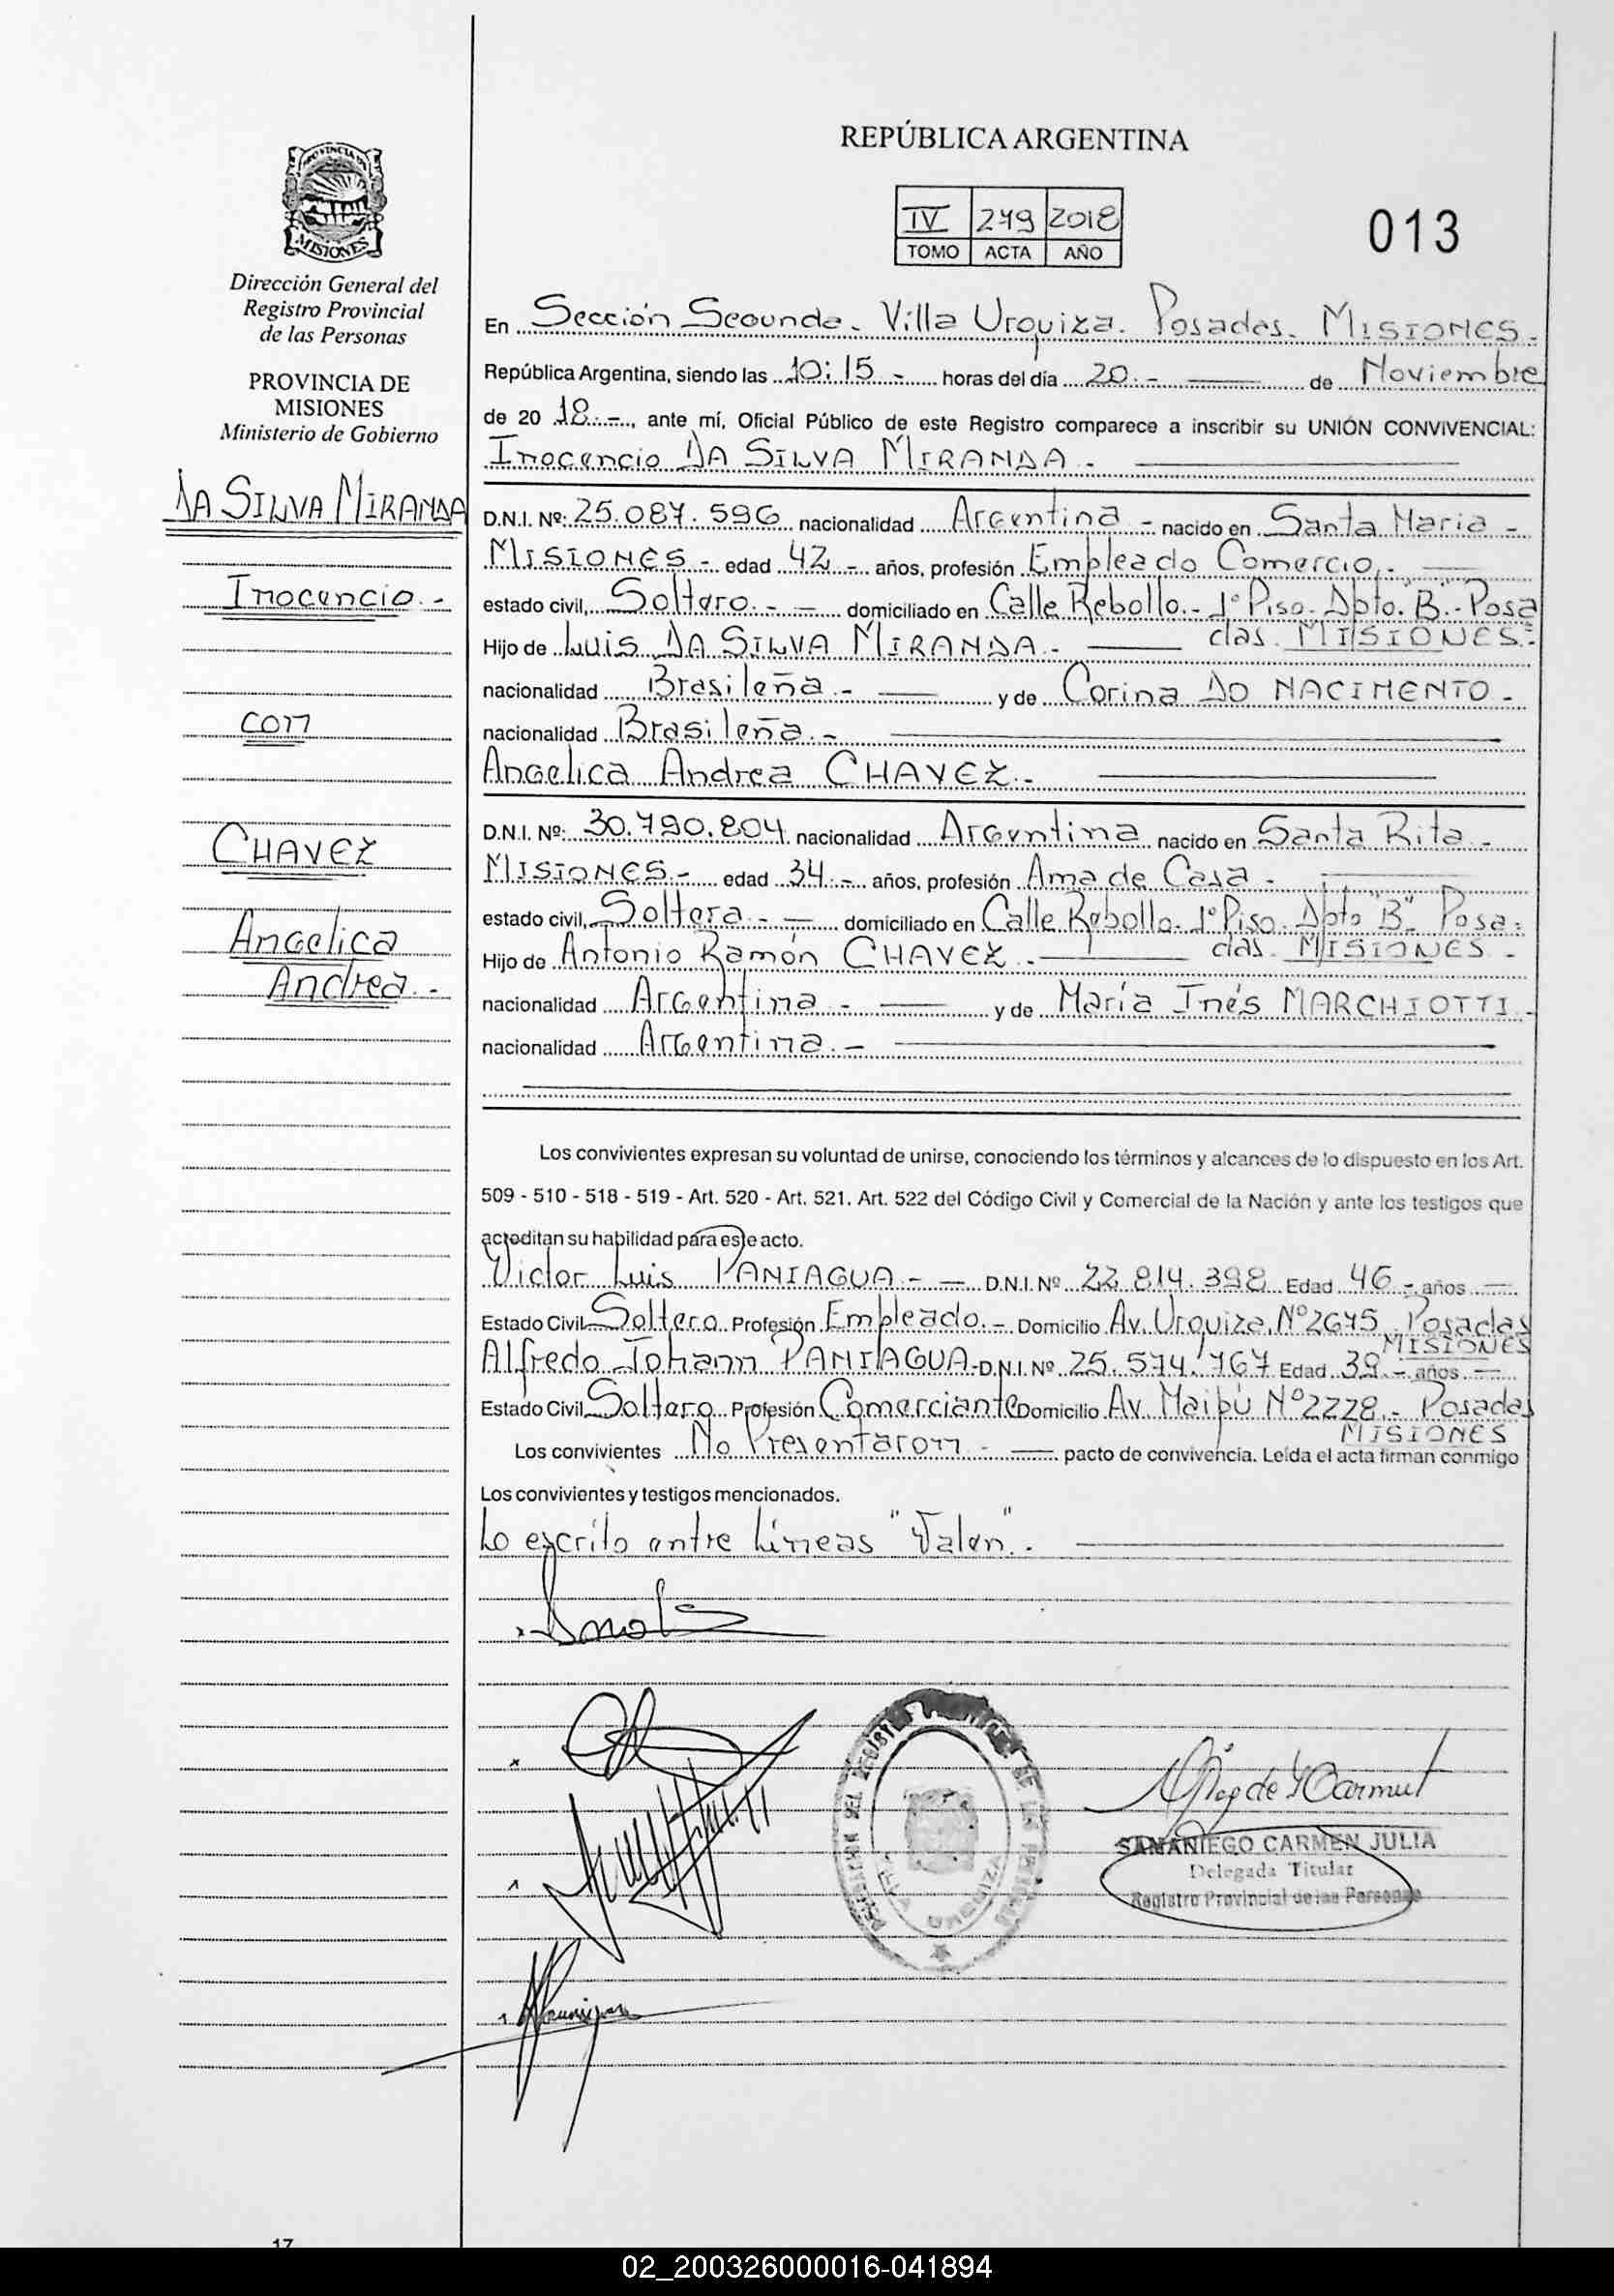 REPÚBLICA ARGENTINA
IV 279 2018
TOMO ACTA AÑO
013
PROVINCIA DE
MISIONES
Dirección General del
Registro Provincial
de las Personas
PROVINCIA DE
MISIONES
Ministerio de Gobierno
DA SILVA MIRANDA
Inocencio.-
con
CHAVEZ
Angelica
Andrea.-
En Sección Segunda. Villa Urquiza. Posadas. MISIONES.-
República Argentina, siendo las 10:15.- horas del día 20.- de Noviembre
de 20 18.-, ante mí, Oficial Público de este Registro comparece a inscribir su UNIÓN CONVIVENCIAL:
Inocencio DA SILVA MIRANDA.-
D.N.I. Nº: 25.087.596 nacionalidad Argentina - nacido en Santa Maria -
MISIONES - edad 42 - años, profesión Empleado Comercio.-
estado civil, Soltero.- domiciliado en Calle Rebollo.- 1º Piso. Dpto. "B".- Posa
das. MISIONES.-
Hijo de Luis DA SILVA MIRANDA.-
nacionalidad Brasileña.- y de Corina DO NACIMENTO.-
nacionalidad Brasileña.-
Angelica Andrea CHAVEZ.-
D.N.I. Nº: 30.790.804. nacionalidad Argentina nacido en Santa Rita.-
MISIONES.- edad 34.- años, profesión Ama de Casa -
estado civil, Soltera.- domiciliado en Calle Rebollo. 1º Piso. Dpto "B". Posa-
das. MISIONES -
Hijo de Antonio Ramón CHAVEZ.-
nacionalidad Argentina.- y de María Inés MARCHIOTTI.-
nacionalidad Argentina.-
Los convivientes expresan su voluntad de unirse, conociendo los términos y alcances de lo dispuesto en los Art.
509 - 510 - 518 - 519 - Art. 520 - Art. 521. Art. 522 del Código Civil y Comercial de la Nación y ante los testigos que
acreditan su habilidad para este acto.
Victor Luis PANIAGUA.- D.N.I. Nº 22.814.398 Edad 46.- años
Estado Civil Soltero Profesión Empleado.- Domicilio Av. Urquiza. Nº2645 Posadas
MISIONES
Alfredo Johann PANIAGUA- D.N.I. Nº 25.574.767 Edad 39.- años
Estado Civil Soltero Profesión Comerciante Domicilio Av. Maipú Nº2228.- Posadas
MISIONES
Los convivientes No Presentaron.- pacto de convivencia. Leída el acta firman conmigo
Los convivientes y testigos mencionados.
Lo escrito entre Líneas "Valen".-
VILLA URQUIZA
SAMANIEGO CARMEN JULIA
Delegada Titular
Registro Provincial de las Personas
17
02_200326000016-041894